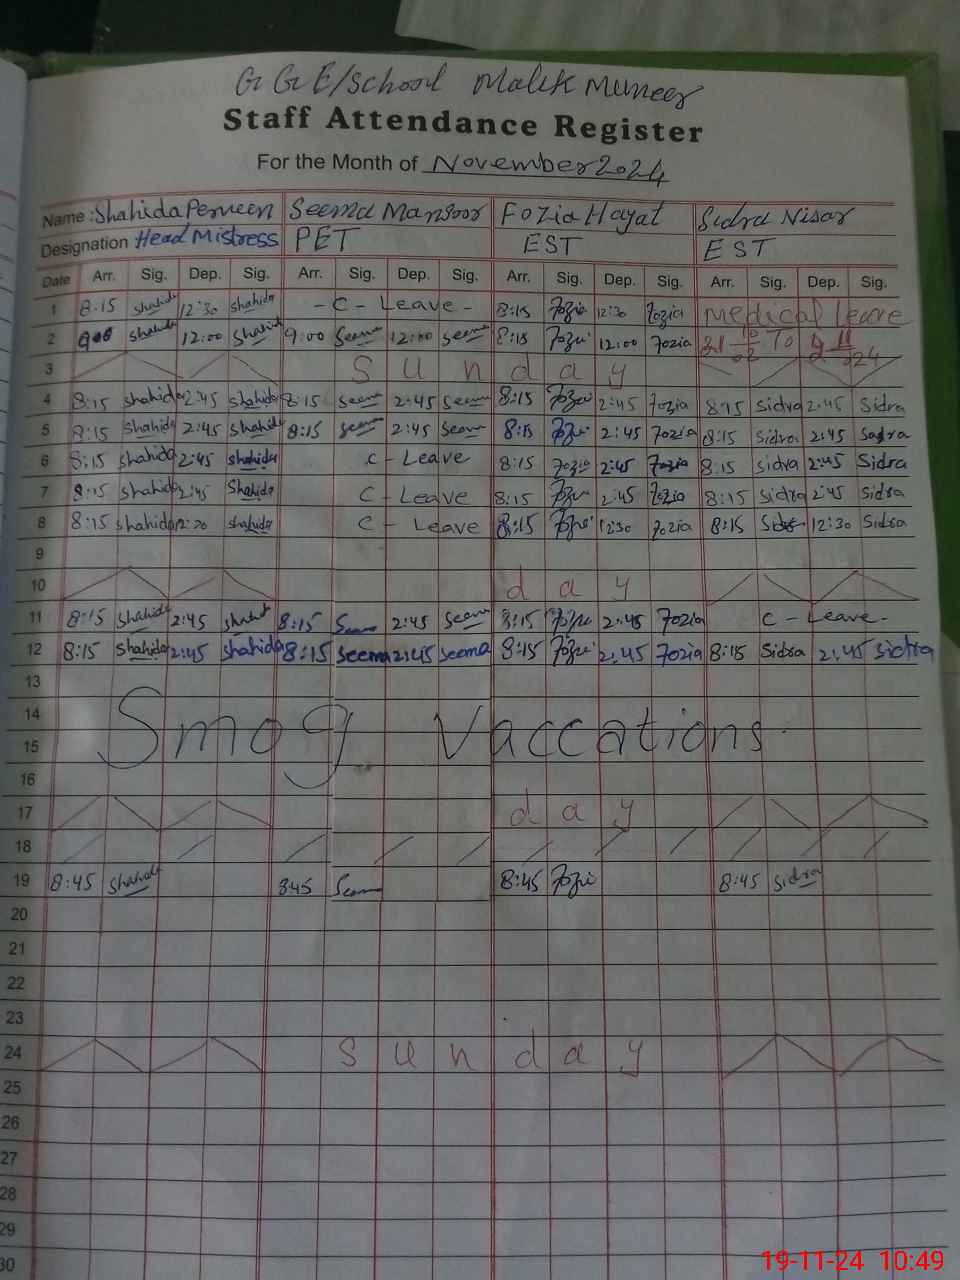 G G E/School Malik Muneer
Staff Attendance Register
For the Month of November 2024
Name : Shahida Perveen Seema Mansoor Fozia Hayat Sidra Nisar
Designation Head Mistress PET EST EST
Date Arr. Sig. Dep. Sig. Arr. Sig. Dep. Sig. Arr. Sig. Dep. Sig. Arr. Sig. Dep. Sig.
1 8:15 shahida 12:30 shahida - C - Leave - 8:15 Fozia 12:30 Fozia Medical leave
2 9:00 shahida 12:00 shahida 9:00 Seema 12:00 seema 8:15 Fozia 12:00 Fozia To
3 S u n d a y
4 8:15 shahida 2:45 shahida 8:15 seema 2:45 seema 8:15 Fozia 2:45 Fozia 8:15 Sidra 2:45 Sidra
5 8:15 shahida 2:45 shahida 8:15 seema 2:45 seema 8:15 Fozia 2:45 Fozia 8:15 Sidra 2:45 Sidra
6 8:15 shahida 2:45 shahida C - Leave 8:15 Fozia 2:45 Fozia 8:15 Sidra 2:45 Sidra
7 8:15 shahida 2:45 Shahida C - Leave 8:15 Fozia 2:45 Fozia 8:15 Sidra 2:45 Sidra
8 8:15 shahida shahida C - Leave 8:15 Fozia 12:30 Fozia 8:15 Sidra 12:30 Sidra
9
10 d a y
11 8:15 shahida 2:45 shahida 8:15 Seema 2:45 seema 8:15 Fozia 2:45 Fozia C - Leave -
12 8:15 shahida 2:45 shahida 8:15 seema 2:45 seema 8:15 Fozia 2:45 Fozia 8:15 Sidra 2:45 sidra
13
14 Smog Vaccations
15
16
17 d a y
18
19 8:45 shahida 8:45 Seema 8:45 Fozia 8:45 sidra
20
21
22
23
24 S u n d a y
25
26
27
28
29
30
19-11-24 10:49